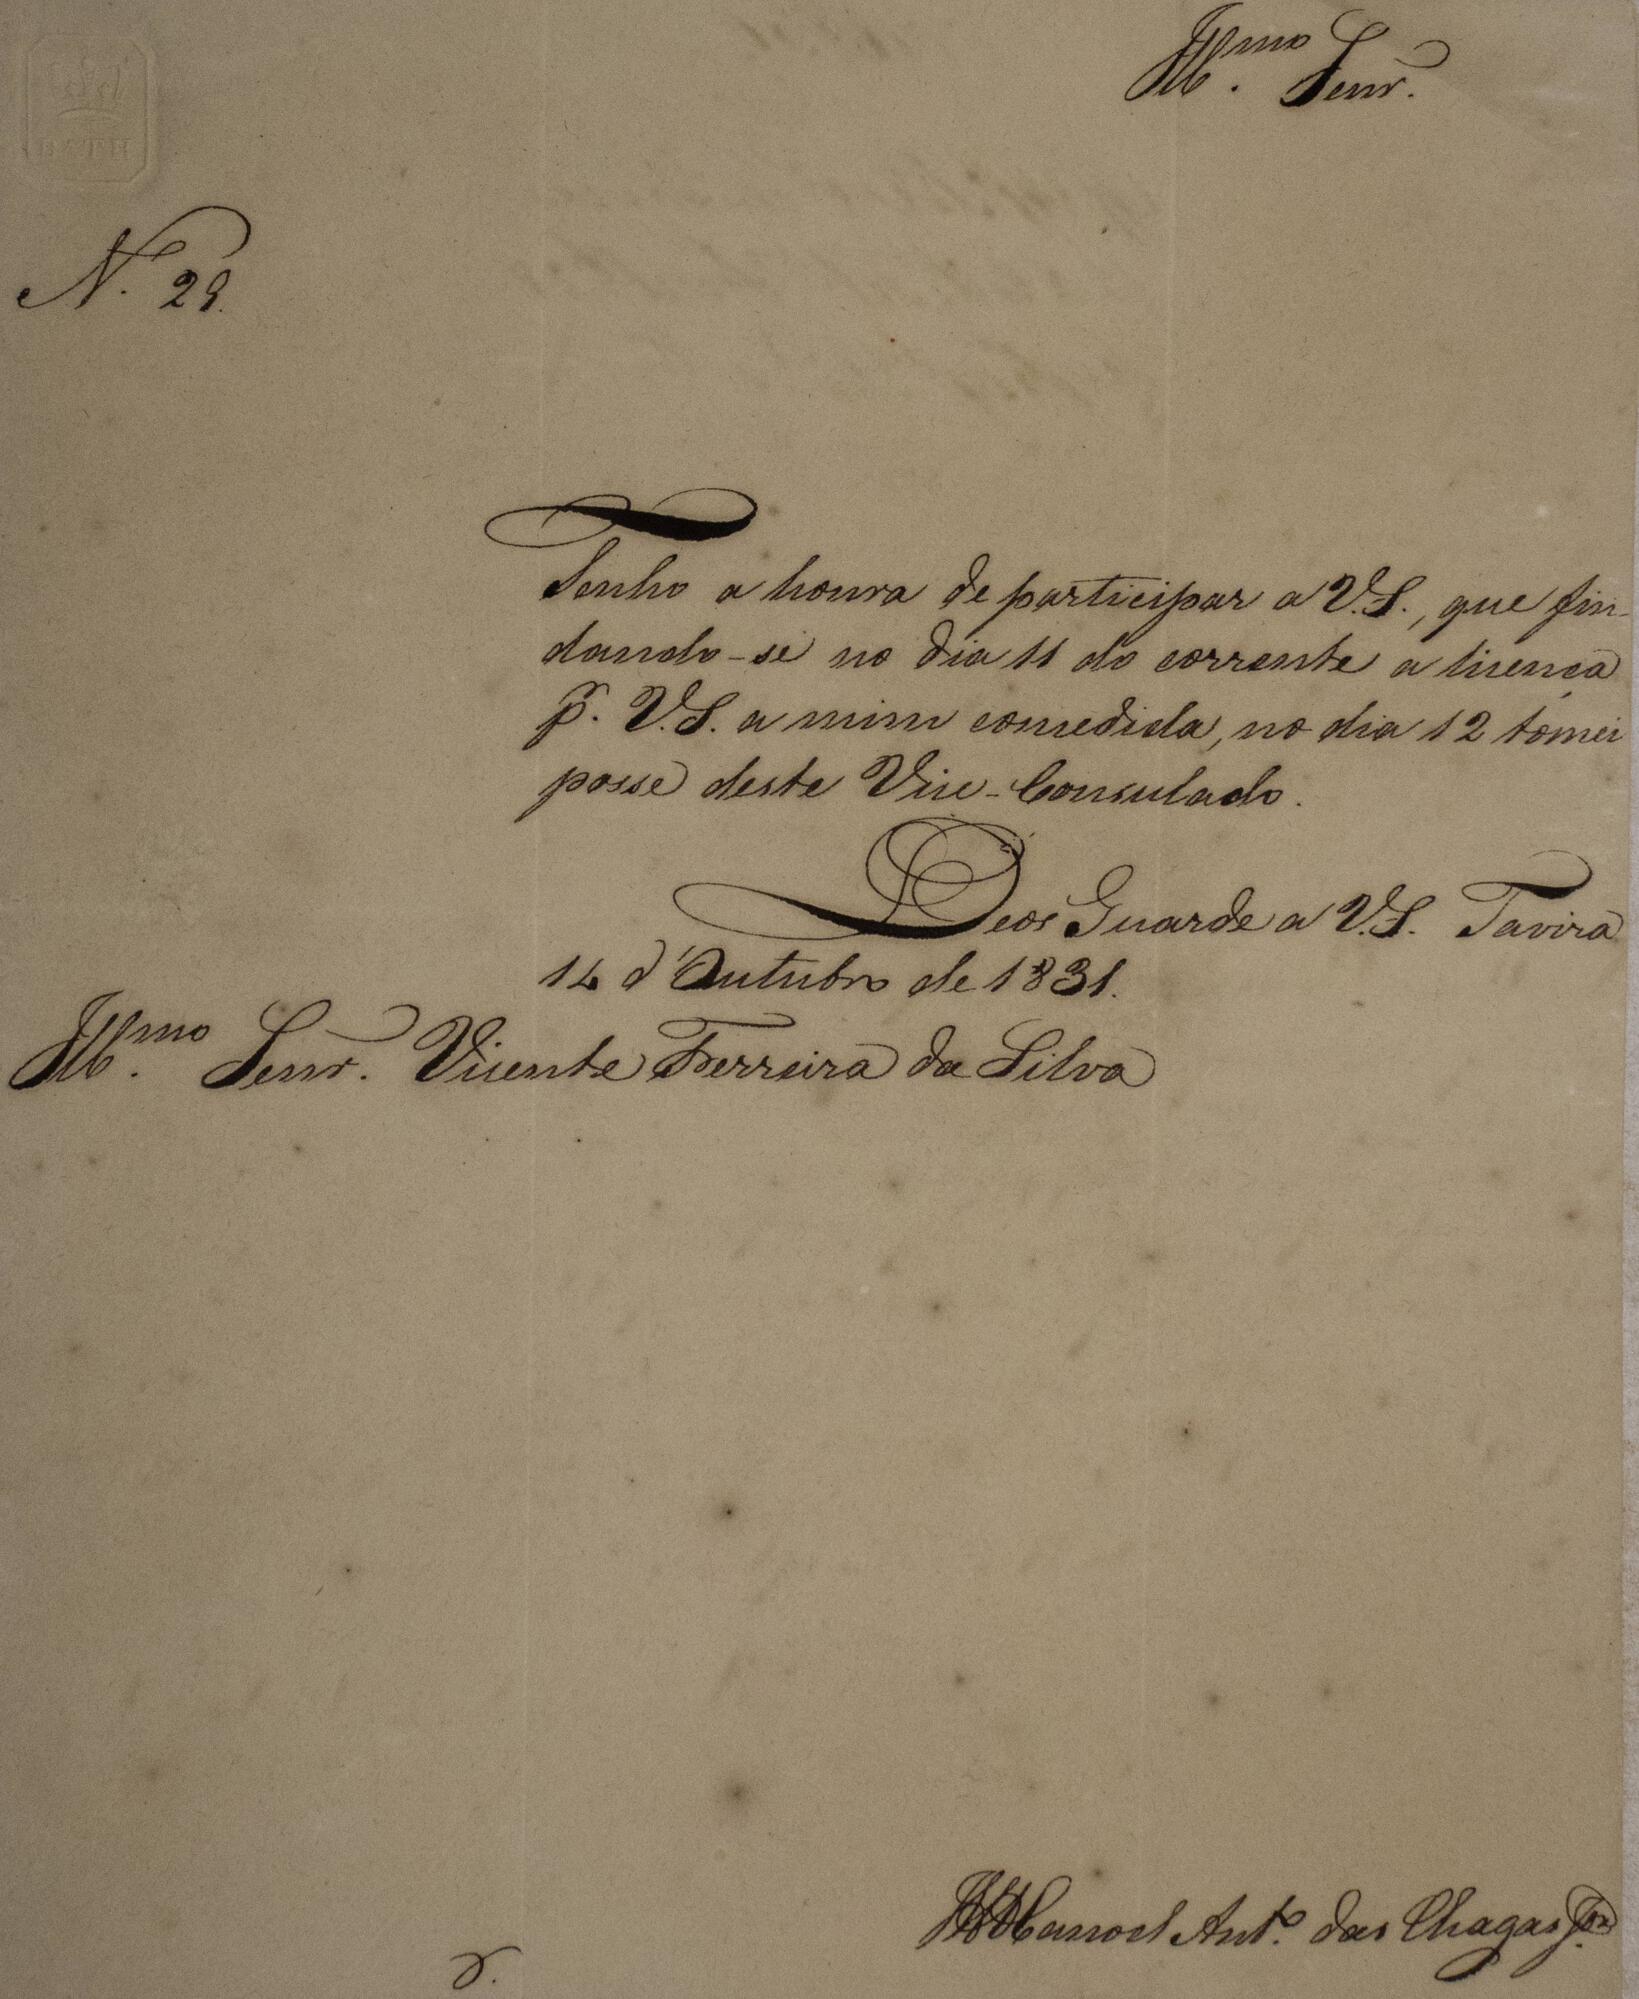 Ill.mo Senr.
N. 29.
Tenho a honra de participar a V.S., que fin-
dando-se no dia 11 do corrente a licença
p.r V.S. a mim concedida, no dia 12 tomei
posse deste Vice-Consulado.
Deos Guarde a V.S. Tavira
14 d'Outubro de 1831.
Ill.mo Senr. Vicente Ferreira da Silva
Manoel Ant.o das Chagas J.or